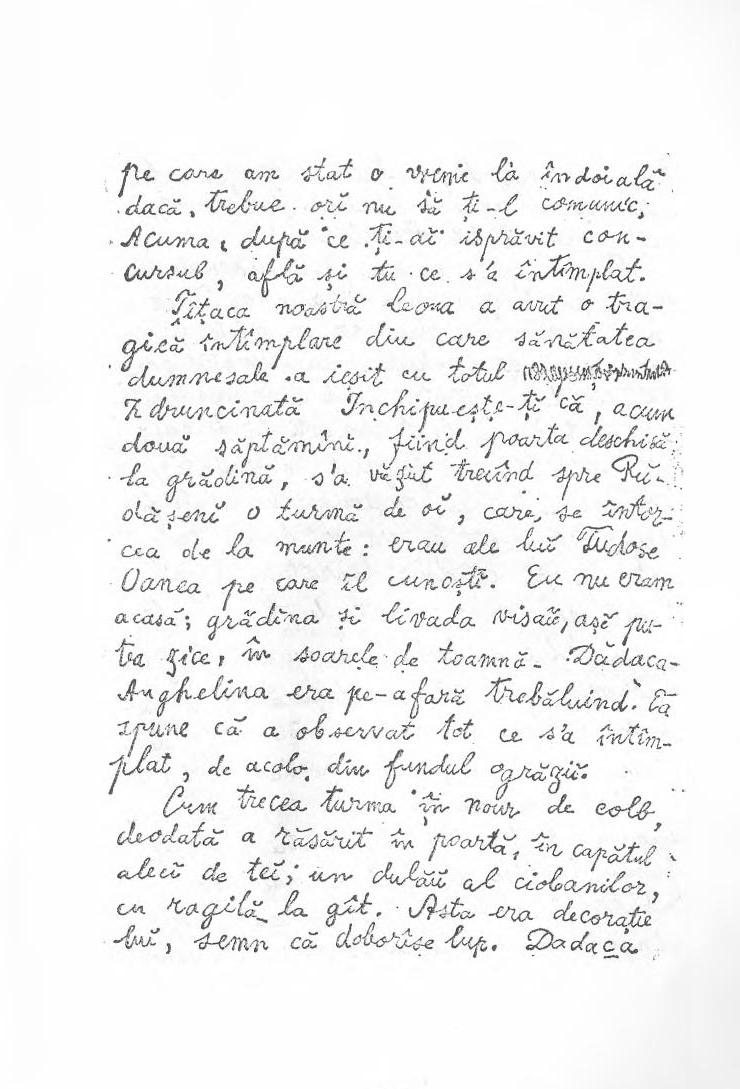 pe care am stat o vreme la îndoială
dacă trebue ori nu să ți-l comunic;
Acuma, după ce ți-ai isprăvit con-
cursul, află și tu ce s'a întîmplat.
Țîțaca noastră Leona a avut o tra-
gică întîmplare din care sănătatea
dumnesale a ieșit cu totul
zdruncinată Închipuește-ți că, acum
două săptămîni, fiind poarta deschisă
la grădină, s'a văzut trecînd spre Ră-
dășeni o turmă de oi, care se întor-
cea de la munte: erau ale lui Tudose
Oanea pe care îl cunoști. Eu nu eram
acasă; grădina și livada visau, așĭ pu-
tea zice, în soarele de toamnă. Dădaca
Anghelina era pe-afară trebăluind. Ea
spune că a observat tot ce s'a întîm-
plat, de acolo, din fundul ogrăzii.
Cum trecea turma în nour de colb,
deodată a răsărit în poartă, în capătul
aleii de tei, un dulău al ciobanilor,
cu ragilă la gît. Asta era decorație
lui, semn că doborîse lup. Dadaca